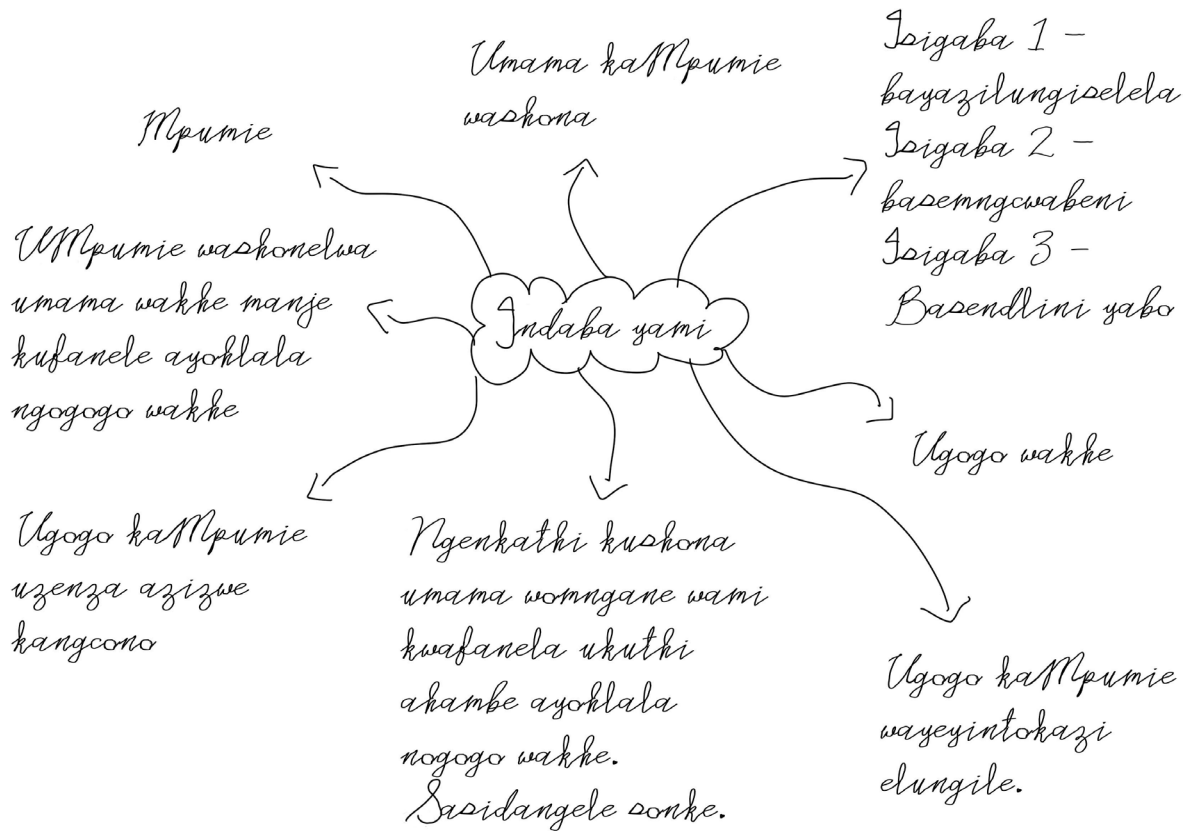 Umama kaMpumie
washona
Isigaba 1 –
bayazilungiselela
Isigaba 2 –
basemngcwabeni
Isigaba 3 –
Basendlini yabo
Mpumie
UMpumie washonelwa
umama wakhe manje
kufanele ayohlala
ngogogo wakhe
Indaba yami
Ugogo wakhe
Ugogo kaMpumie
uzenza azizwe
kangcono
Ngenkathi kushona
umama womngane wami
kwafanela ukuthi
ahambe ayohlala
nogogo wakhe.
Sasidangele sonke.
Ugogo kaMpumie
wayeyintokazi
elungile.